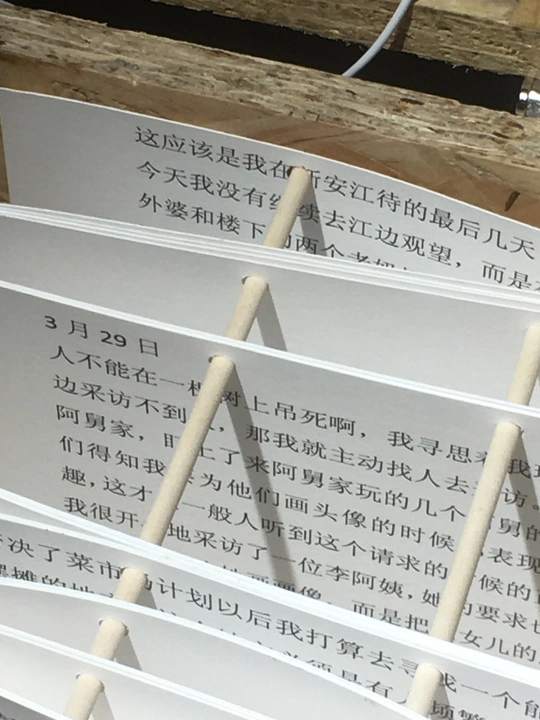 这应该是我在新安江待的最后几天
今天我没有继续去江边观望，而是
外婆和楼下的两个老
3 月 29 日
人不能在一棵树上吊死啊，我寻思
边采访不到，那我就主动找人去采访。
阿舅家，盯上了来阿舅家玩的几个 舅的
们得知我 为他们画头像的时候 表现
趣，这才 一般人听到这个请求的 候的
我很开 地采访了一位李阿姨，她的要求也
画像，而是把 女儿的
决了菜市场计划以后我打算去寻找一个
摊的地
须是有 烦